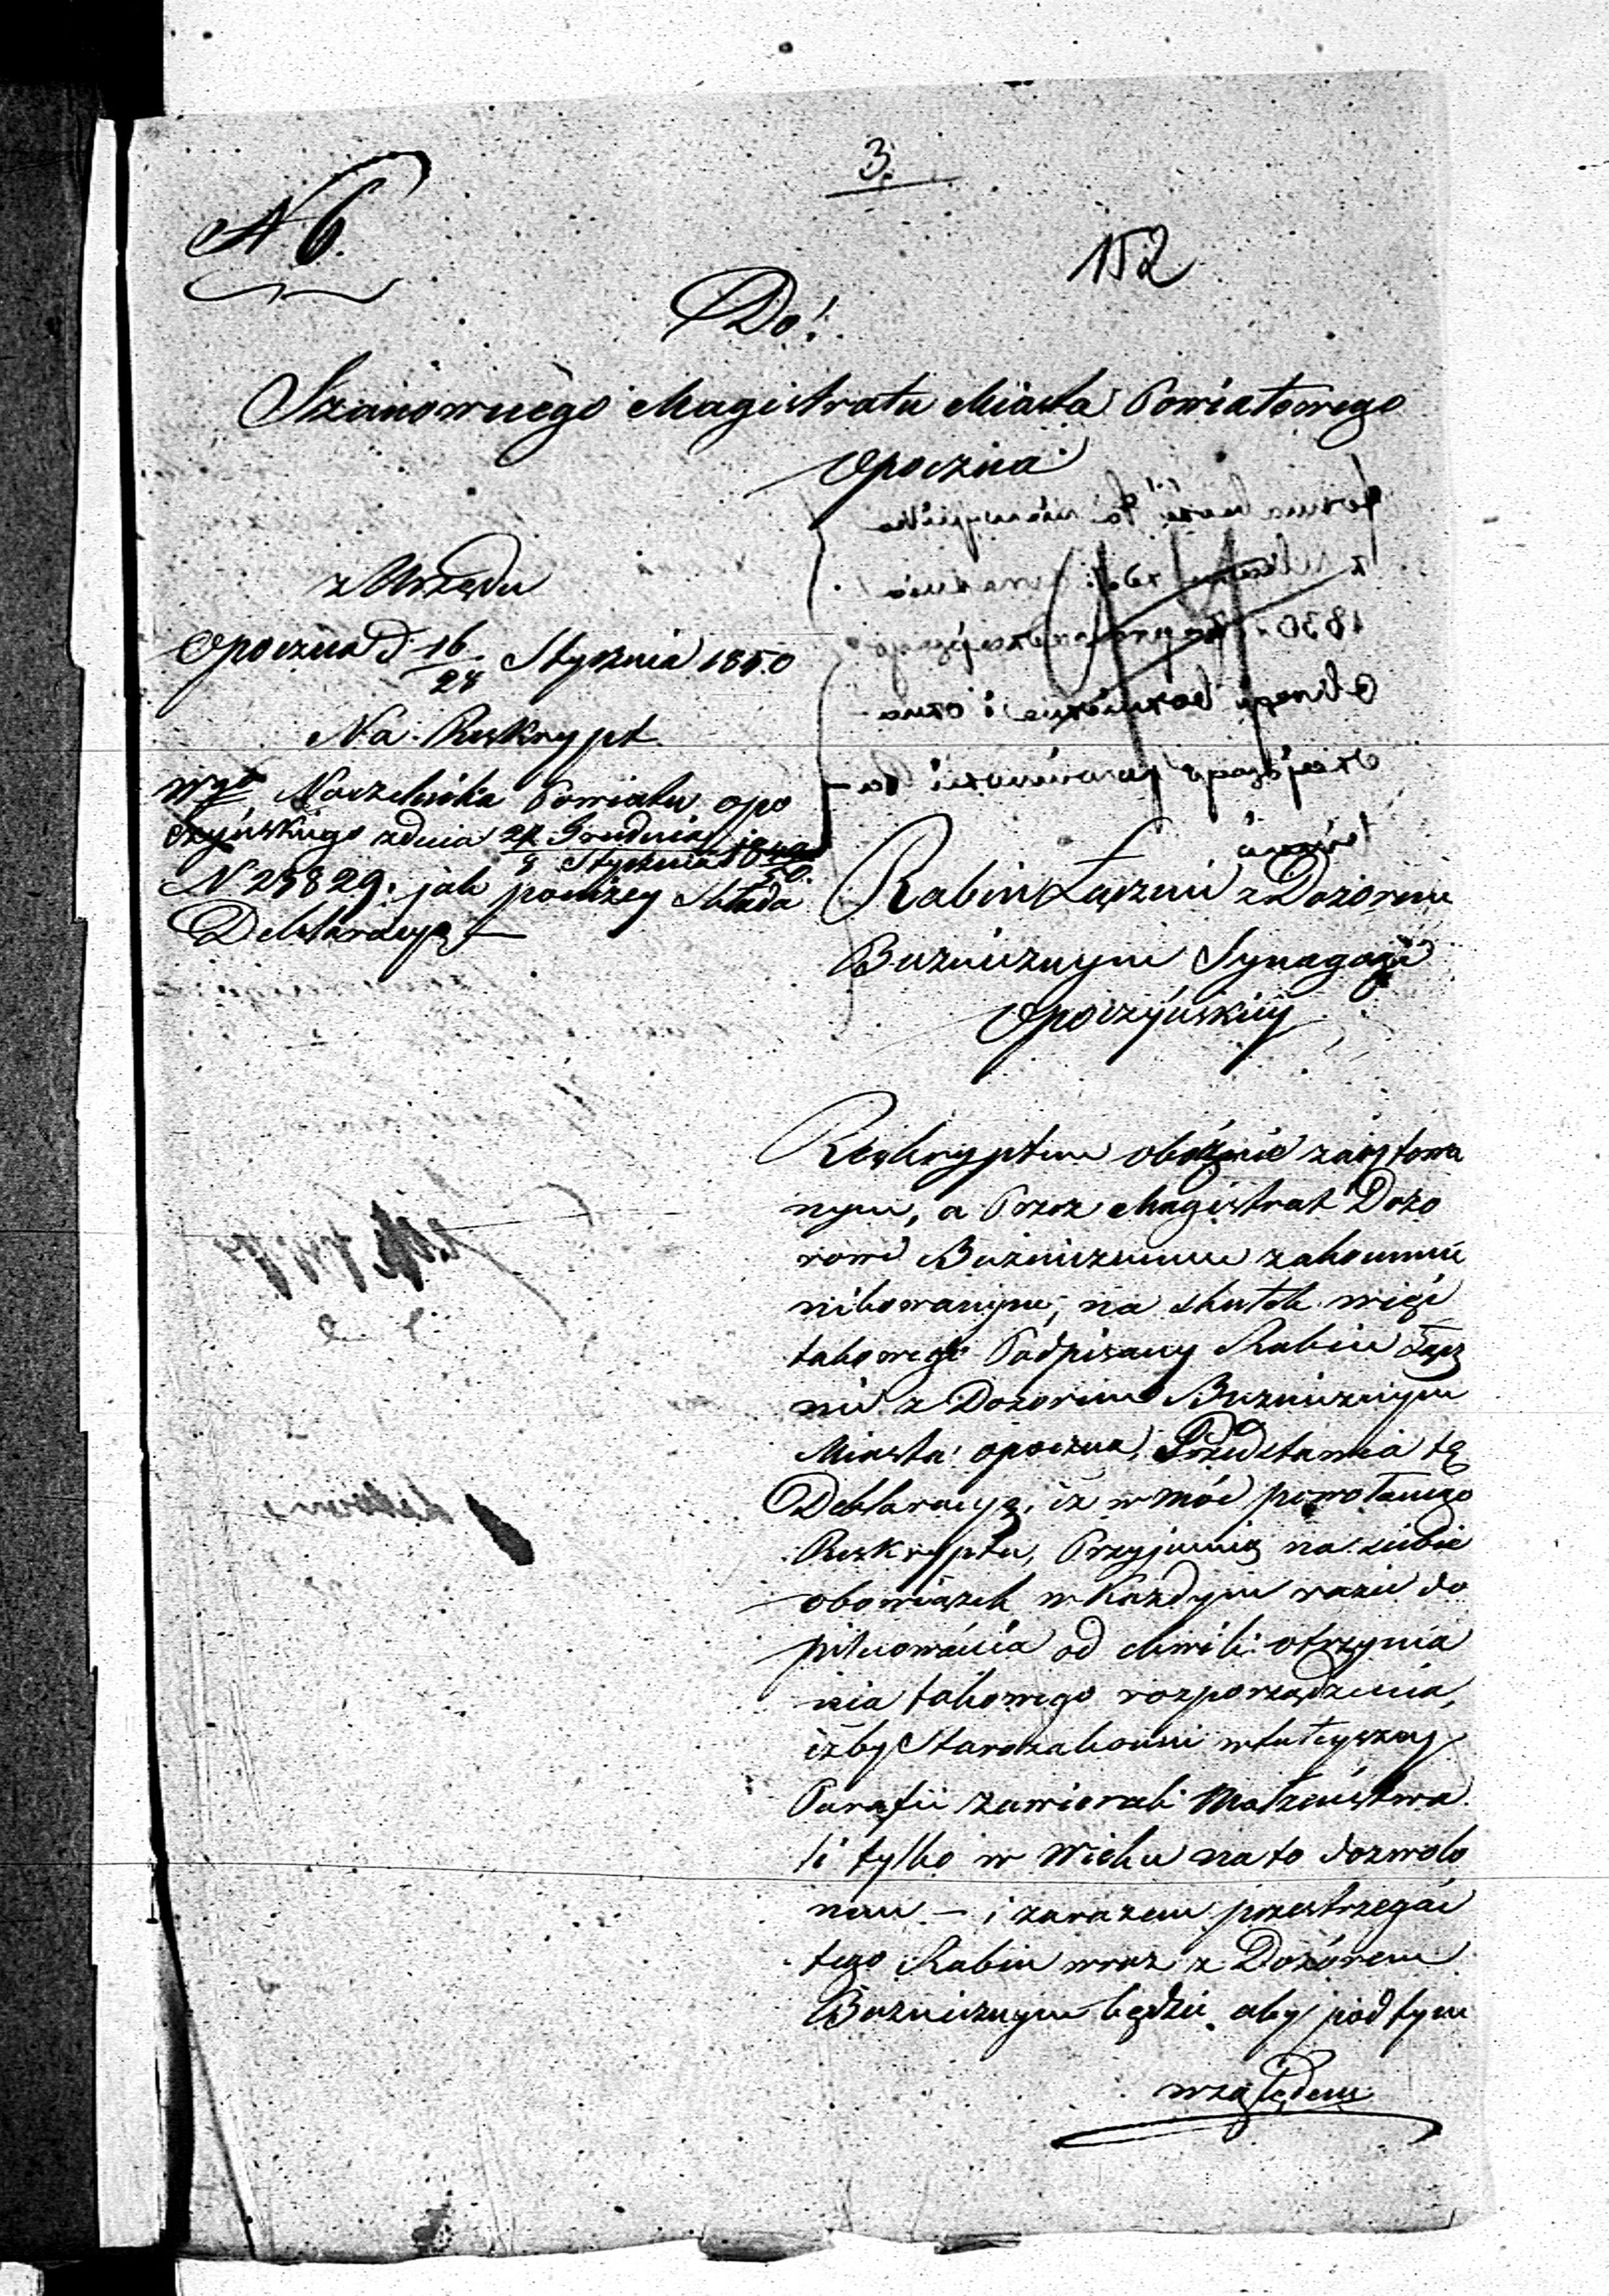 3.
N 6.
152
Do!
Szanownego Magistratu Miasta Powiatowego
Opoczna
z Urzędu
Opoczna d 16/28 Stycznia 1850
Na Reskrypt
Wgo Naczelnika Powiatu Opo
czyńskiego z dnia 24 Grudnia/8 Stycznia 1849/50
N 25829. jak poniżey Składa
Deklaracyą —
Rabin Łącznie z Dozorem
Bużnicznym Synagogi
Opoczyńskiey
Reskryptem obóżnie zacytowa
nym, a Przez Magistrat Dozo
rowi Bużnicznemu zakommu
nikowanym, na skutek więc
takowego Podpisany Rabin Łącz
nie z Dozorem Bużnicznym
Miasta Opoczna, Przedstawia tę
Deklaracyą, iż w moc powołanego
Reskryptu, Przyjmuię na siebie
obowiązek w Każdym razie do
pilnowania od chwili otrzyma
nia takowego rozporządzenia,
iżby Starozakonni w tuteyszey
Parafii zawierali Małżeństwa
li tylko w Wieku na to dozwolo
nem — i zarazem przestrzegać
tego Rabin wraz z Dozorem
Bużnicznym będzie, aby pod tym
względem